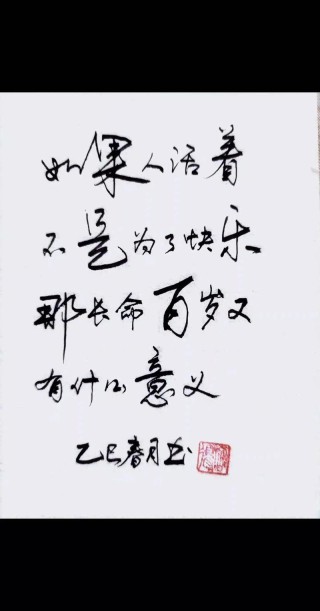 如果人活着
不是为了快乐
那长命百岁又
有什么意义
乙巳春月书